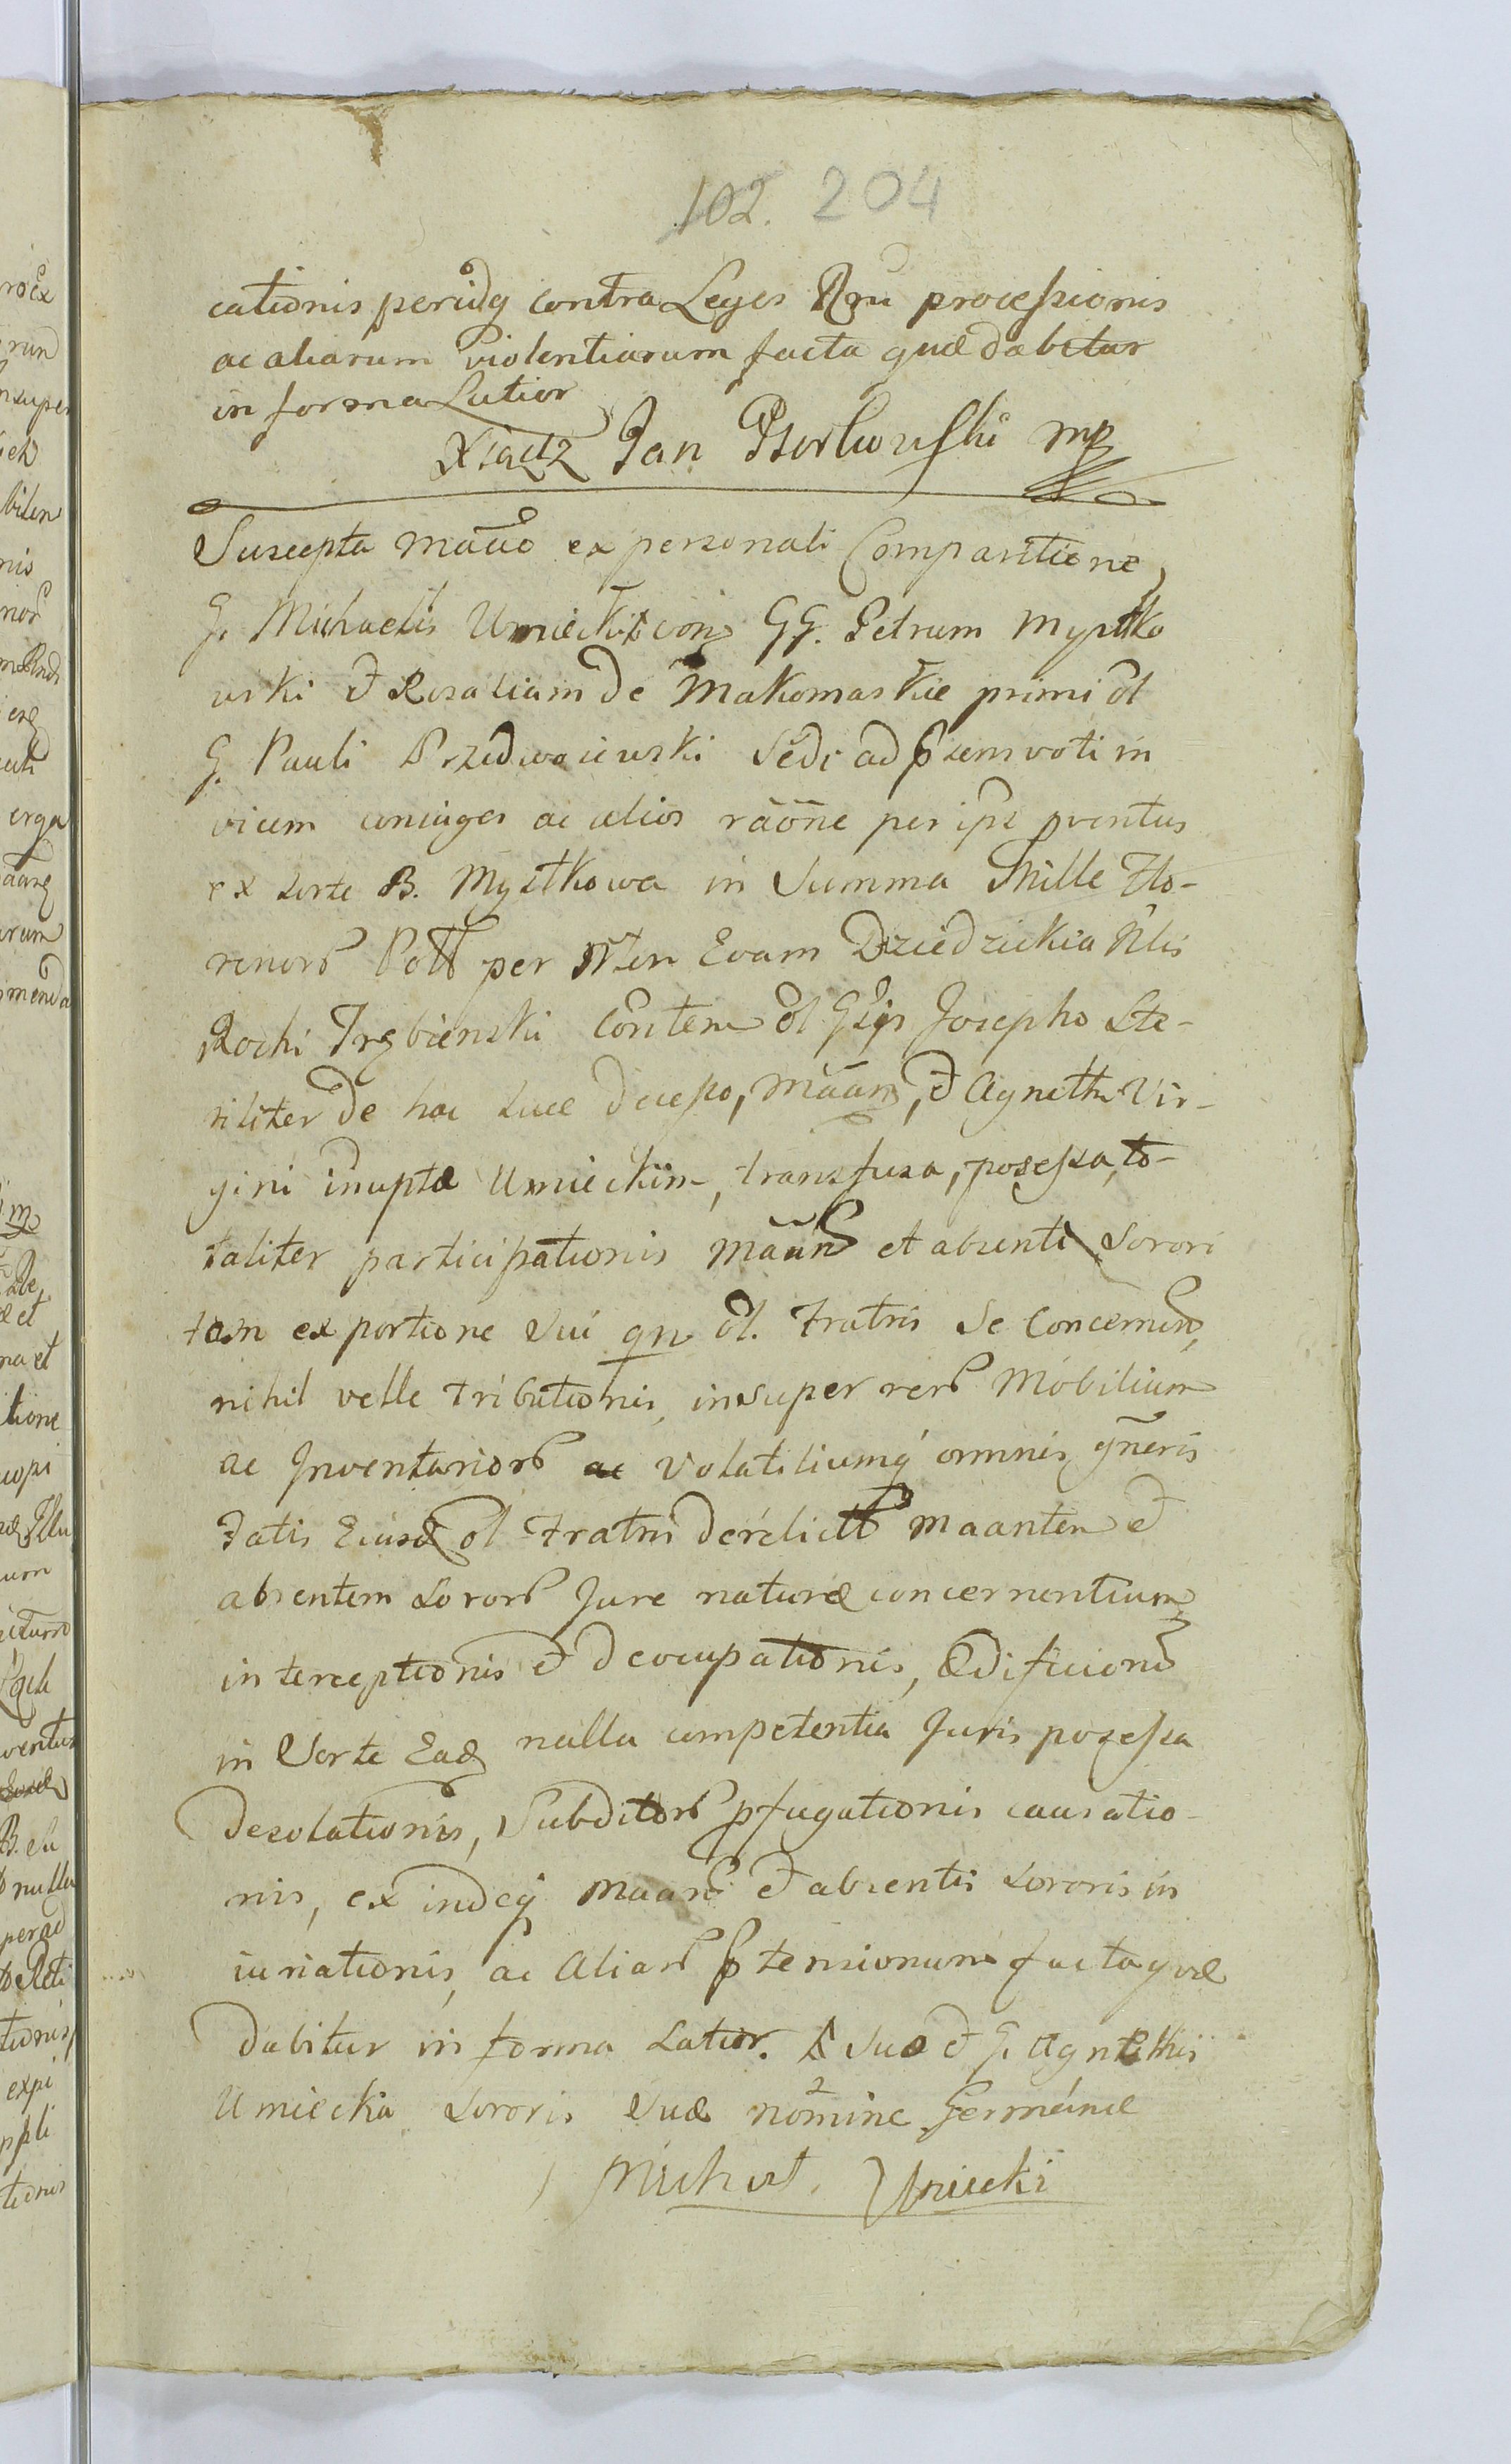 102. 204
cationis periudg contra Leges Rni processionis
ac aliarum violentiarum facta quæ dabitur
in forma Latior
Xiądz Jan Psorkowski mp
Suscepta mano ex personali Comparitione
G. Michaelis Umiecki con GG. Petrum Mystko
wski et Rosaliam de Makomaskie primi ol
G. Pauli Przedwoiewski Sedi ad psens voti in
vicem coniuges ac alios raōne per ips pventus
ex Sorte B. Mystkowa in Summa Mille Flo-
renors Poll per Nten Evam Dziedzickia Nlis
Rochi Trębienski Conten ol Gsis Josepho Ste-
riliter de hac Luce decesso, Māan, et Agneth Vir-
gini inuptæ Umieckim, transfusa, posessa, to-
taliter participationis Māan et absenti Sorori
tam ex portione Sui qn ol. Fratris Se Concernen,
nihil velle tributionis, insuper rers Mobilium
ac Inventariors ac Volatiliumq omnis gneris
Fatis Eiusd ol Fratris derelict Maanten et
absentem Sorors Jure naturæ concernentium
interceptionis et deoccupationis, Ædificiors
in Sorte Ead nulla competentia Juris posessa
Desolationis, Subditors pfugationis causatio-
nis, ex indeq Maans et absentis Sororis in
iuriationis, ac Aliars ptensionum facta quæ
dabitur in forma Latior. Suo et G. Agnethis
Umiecka Sororis Suæ nomine Germanæ
Michał Umiecki